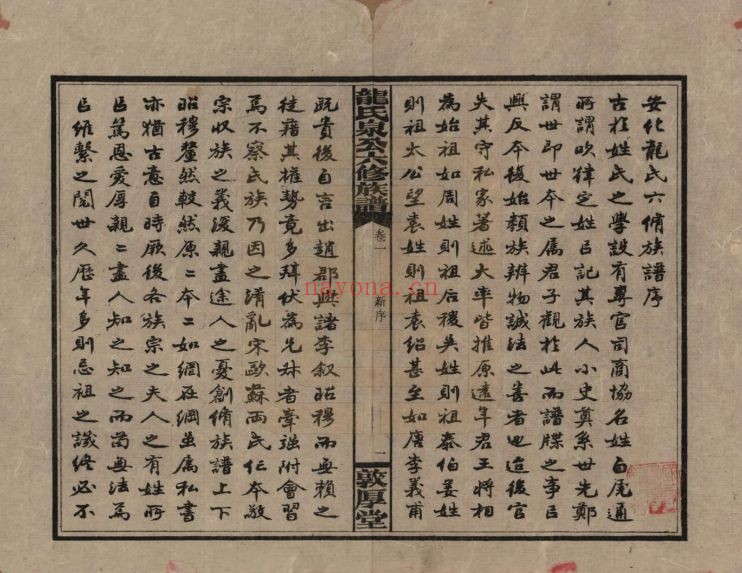 安化龍氏六脩族譜序
古於姓氏之學設有專官司商協名姓白虎通
所謂吹律定姓㠯記其族人小史奠系世先鄭
謂世即世本之屬君子觀於此而譜牒之事㠯
興反本復始類族辨物誠法之善者也迨後官
失其守私家著述大率皆推原遠年君王將相
為始祖如周姓則祖后稷吳姓則祖泰伯姜姓
則祖太公望袁姓則祖袁紹甚至如唐李義甫
龍氏泉公六修族譜
卷一
新序
一
敦厚堂
既貴後自言出趙郡與諸李叙昭穆而無賴之
徒藉其權勢竟多拜伏為兄叔者牽強附會習
焉不察氏族乃因之淆亂宋歐蘇兩氏仁本敬
宗收族之義後親盡途人之憂創脩族譜上下
昭穆釐然較然原二本二如網在綱虽屬私書
亦猶古意自時厥後各族宗之夫人之有姓所
㠯篤恩愛厚親二盡人知之知之而苟無法焉
㠯維繫之閱世久歷年多則忘祖之譏終必不
nayona.cn